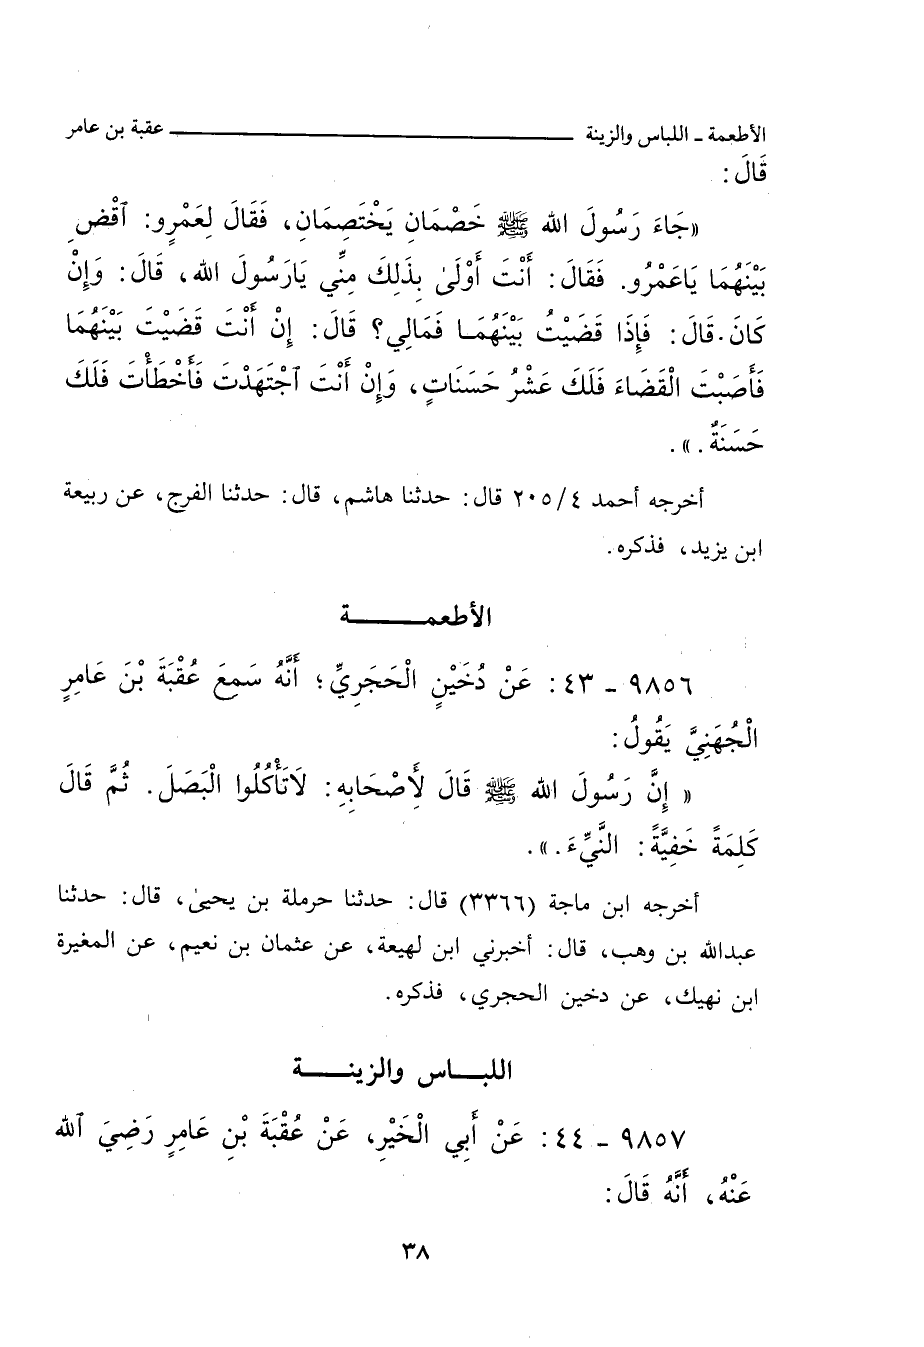 الأطعمة ـ اللباس والزينة ـــــــــــــ عقبة بن عامر
قَالَ :
«جَاءَ رَسُولَ الله ﷺ خَصْمَانِ يَخْتَصِمَانِ، فَقَالَ لِعَمْرٍو: ٱقْضِ
بَيْنَهُمَا يَاعَمْرُو. فَقَالَ: أَنْتَ أَوْلَىٰ بِذَلِكَ مِنِّي يَارَسُولَ الله، قَالَ: وَإِنْ
كَانَ. قَالَ: فَإِذَا قَضَيْتُ بَيْنَهُمَا فَمَالِي؟ قَالَ: إِنْ أَنْتَ قَضَيْتَ بَيْنَهُمَا
فَأَصَبْتَ الْقَضَاءَ فَلَكَ عَشْرُ حَسَنَاتٍ، وَإِنْ أَنْتَ ٱجْتَهَدْتَ فَأَخْطَأْتَ فَلَكَ
حَسَنَةٌ .» .
أخرجه أحمد ٢٠٥/٤ قال: حدثنا هاشم، قال: حدثنا الفرج، عن ربيعة
ابن يزيد، فذكره.
الأطعمـــــة
٩٨٥٦ ـ ٤٣: عَنْ دُخَيْنٍ الْحَجَرِيِّ؛ أَنَّهُ سَمِعَ عُقْبَةَ بْنَ عَامِرٍ
الْجُهَنِيَّ يَقُولُ:
« إِنَّ رَسُولَ الله ﷺ قَالَ لِأَصْحَابِهِ: لَاتَأْكُلُوا الْبَصَلَ. ثُمَّ قَالَ
كَلِمَةً خَفِيَّةً: النَّيِّءَ.».
أخرجه ابن ماجة (٣٣٦٦) قال: حدثنا حرملة بن يحيىٰ، قال: حدثنا
عبدالله بن وهب، قال: أخبرني ابن لهيعة، عن عثمان بن نعيم، عن المغيرة
ابن نهيك، عن دخين الحجري، فذكره.
اللبـــاس والزينـــة
٩٨٥٧ ـ ٤٤: عَنْ أَبِي الْخَيْرِ، عَنْ عُقْبَةَ بْنِ عَامِرٍ رَضِيَ ٱلله
عَنْهُ، أَنَّهُ قَالَ:
٣٨